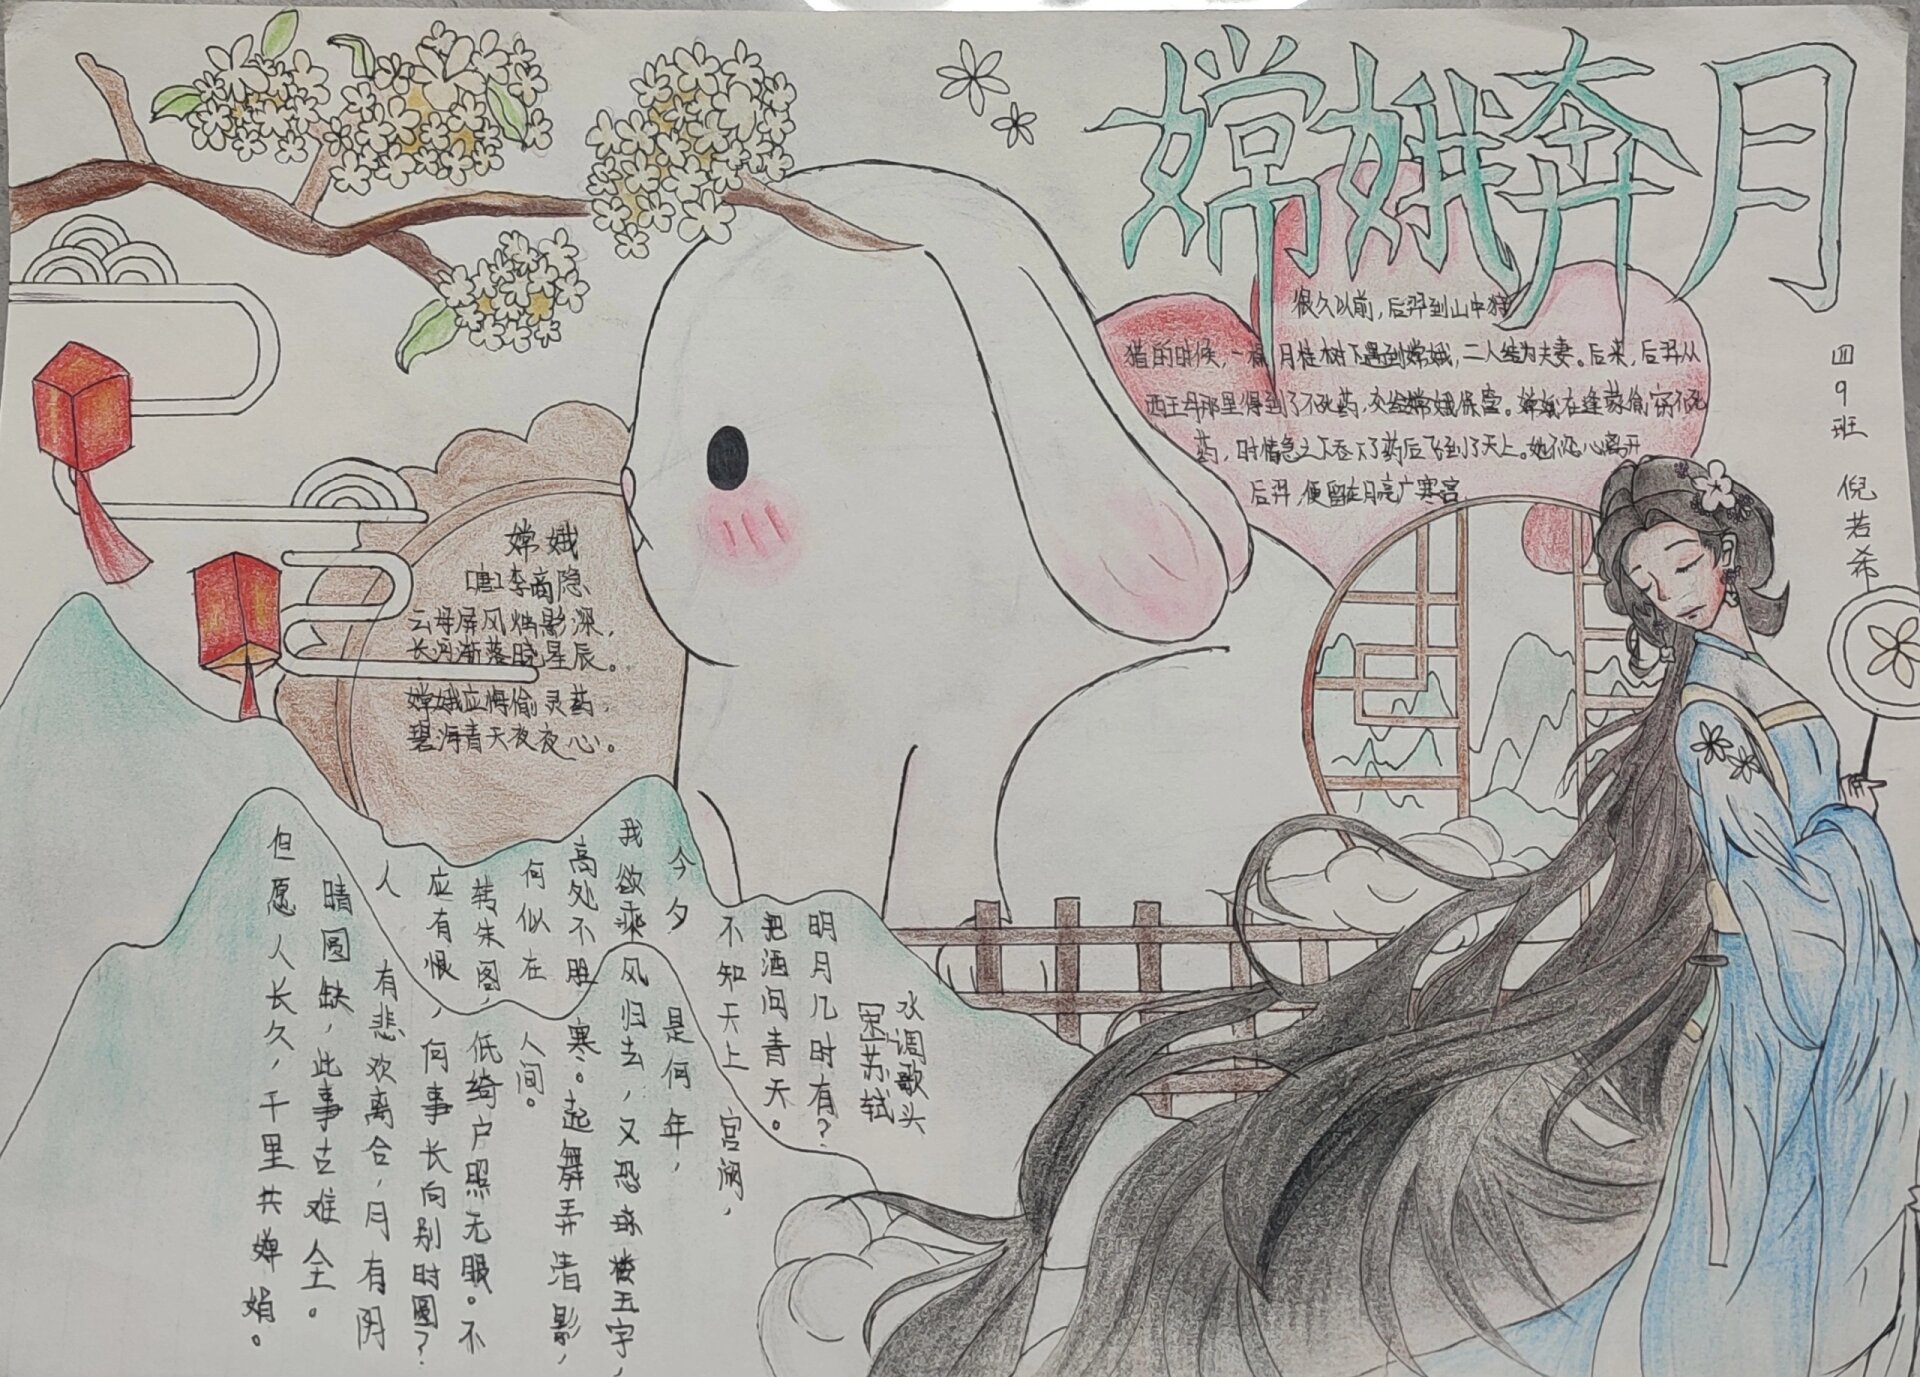 嫦娥奔月
很久以前,后羿到山中狩
猎的时候,一棵月桂树下遇到嫦娥,二人结为夫妻。后来,后羿从
西王母那里得到了不死药,交给嫦娥保管。嫦娥在逢蒙偷窃不死
药,时情急之下吞下了药后飞到了天上。她不忍心离开
后羿,便留在月亮广寒宫
四9班 倪若希
嫦娥
[唐]李商隐
云母屏风烛影深,
长河渐落晓星辰。
嫦娥应悔偷灵药,
碧海青天夜夜心。
水调歌头
宋苏轼
明月几时有?
把酒问青天。
不知天上 宫阙,
今夕 是何年,
我欲乘风归去,又恐琼楼玉宇,
高处不胜寒。起舞弄清影,
何似在 人间。
转朱阁,低绮户照无眠。不
应有恨,何事长向别时圆?
人 有悲欢离合,月有阴
晴圆缺,此事古难全。
但愿人长久,千里共婵娟。